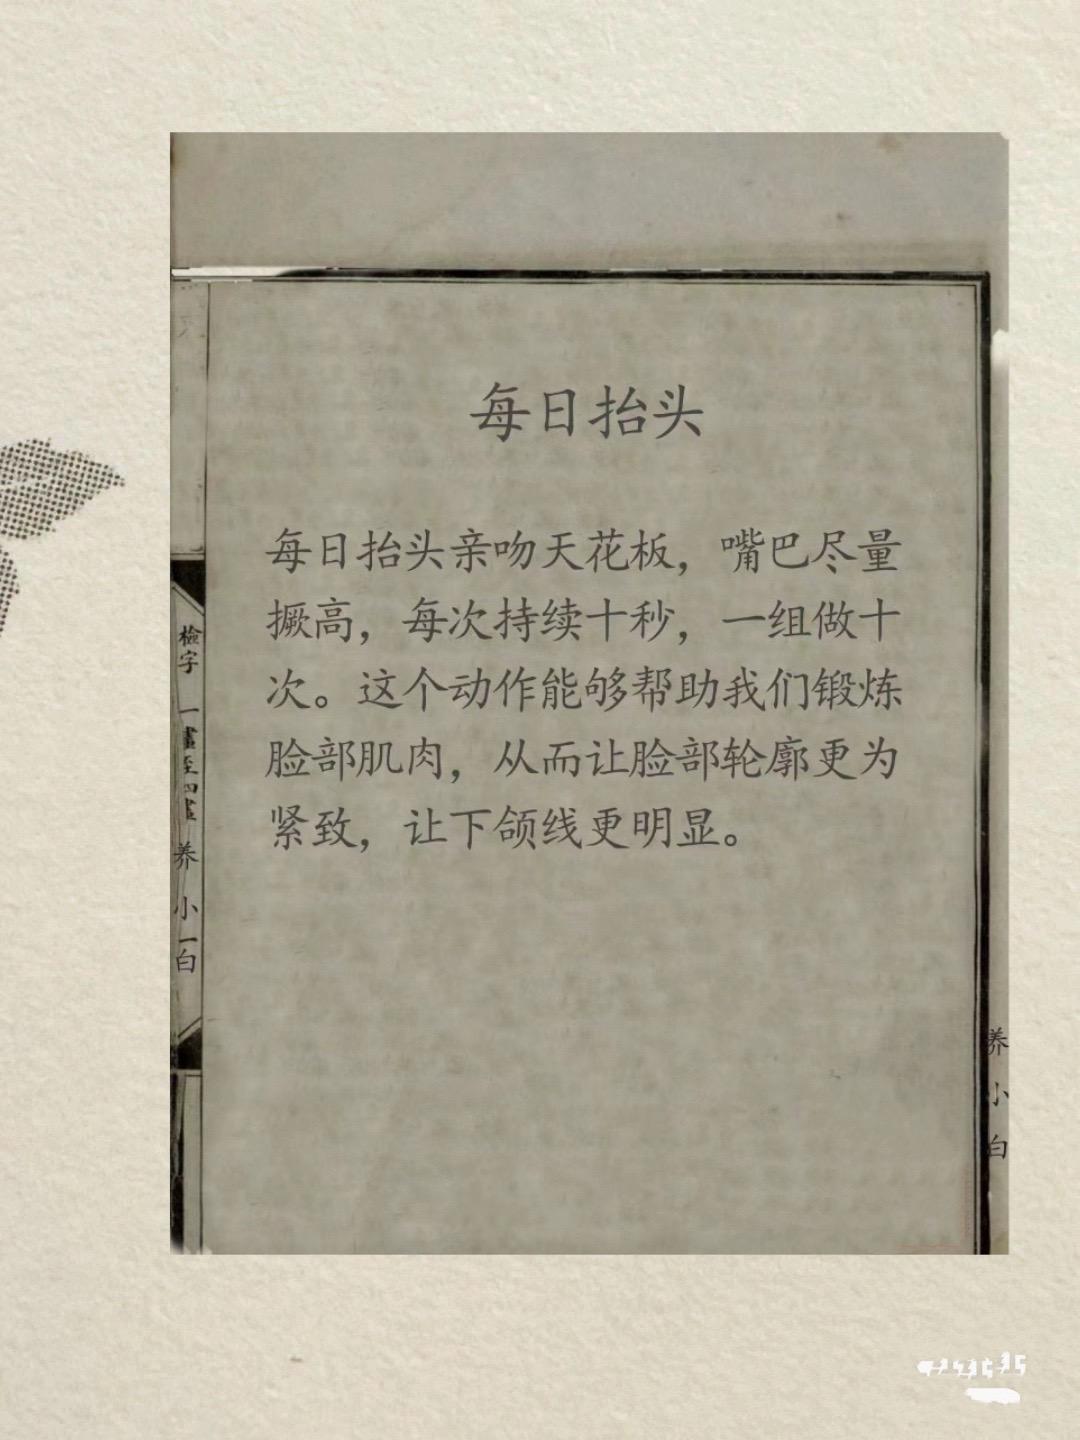 每日抬头
每日抬头亲吻天花板，嘴巴尽量
撅高，每次持续十秒，一组做十
次。这个动作能够帮助我们锻炼
脸部肌肉，从而让脸部轮廓更为
紧致，让下颌线更明显。
檢字
一畫至四畫
养小一白
养小白